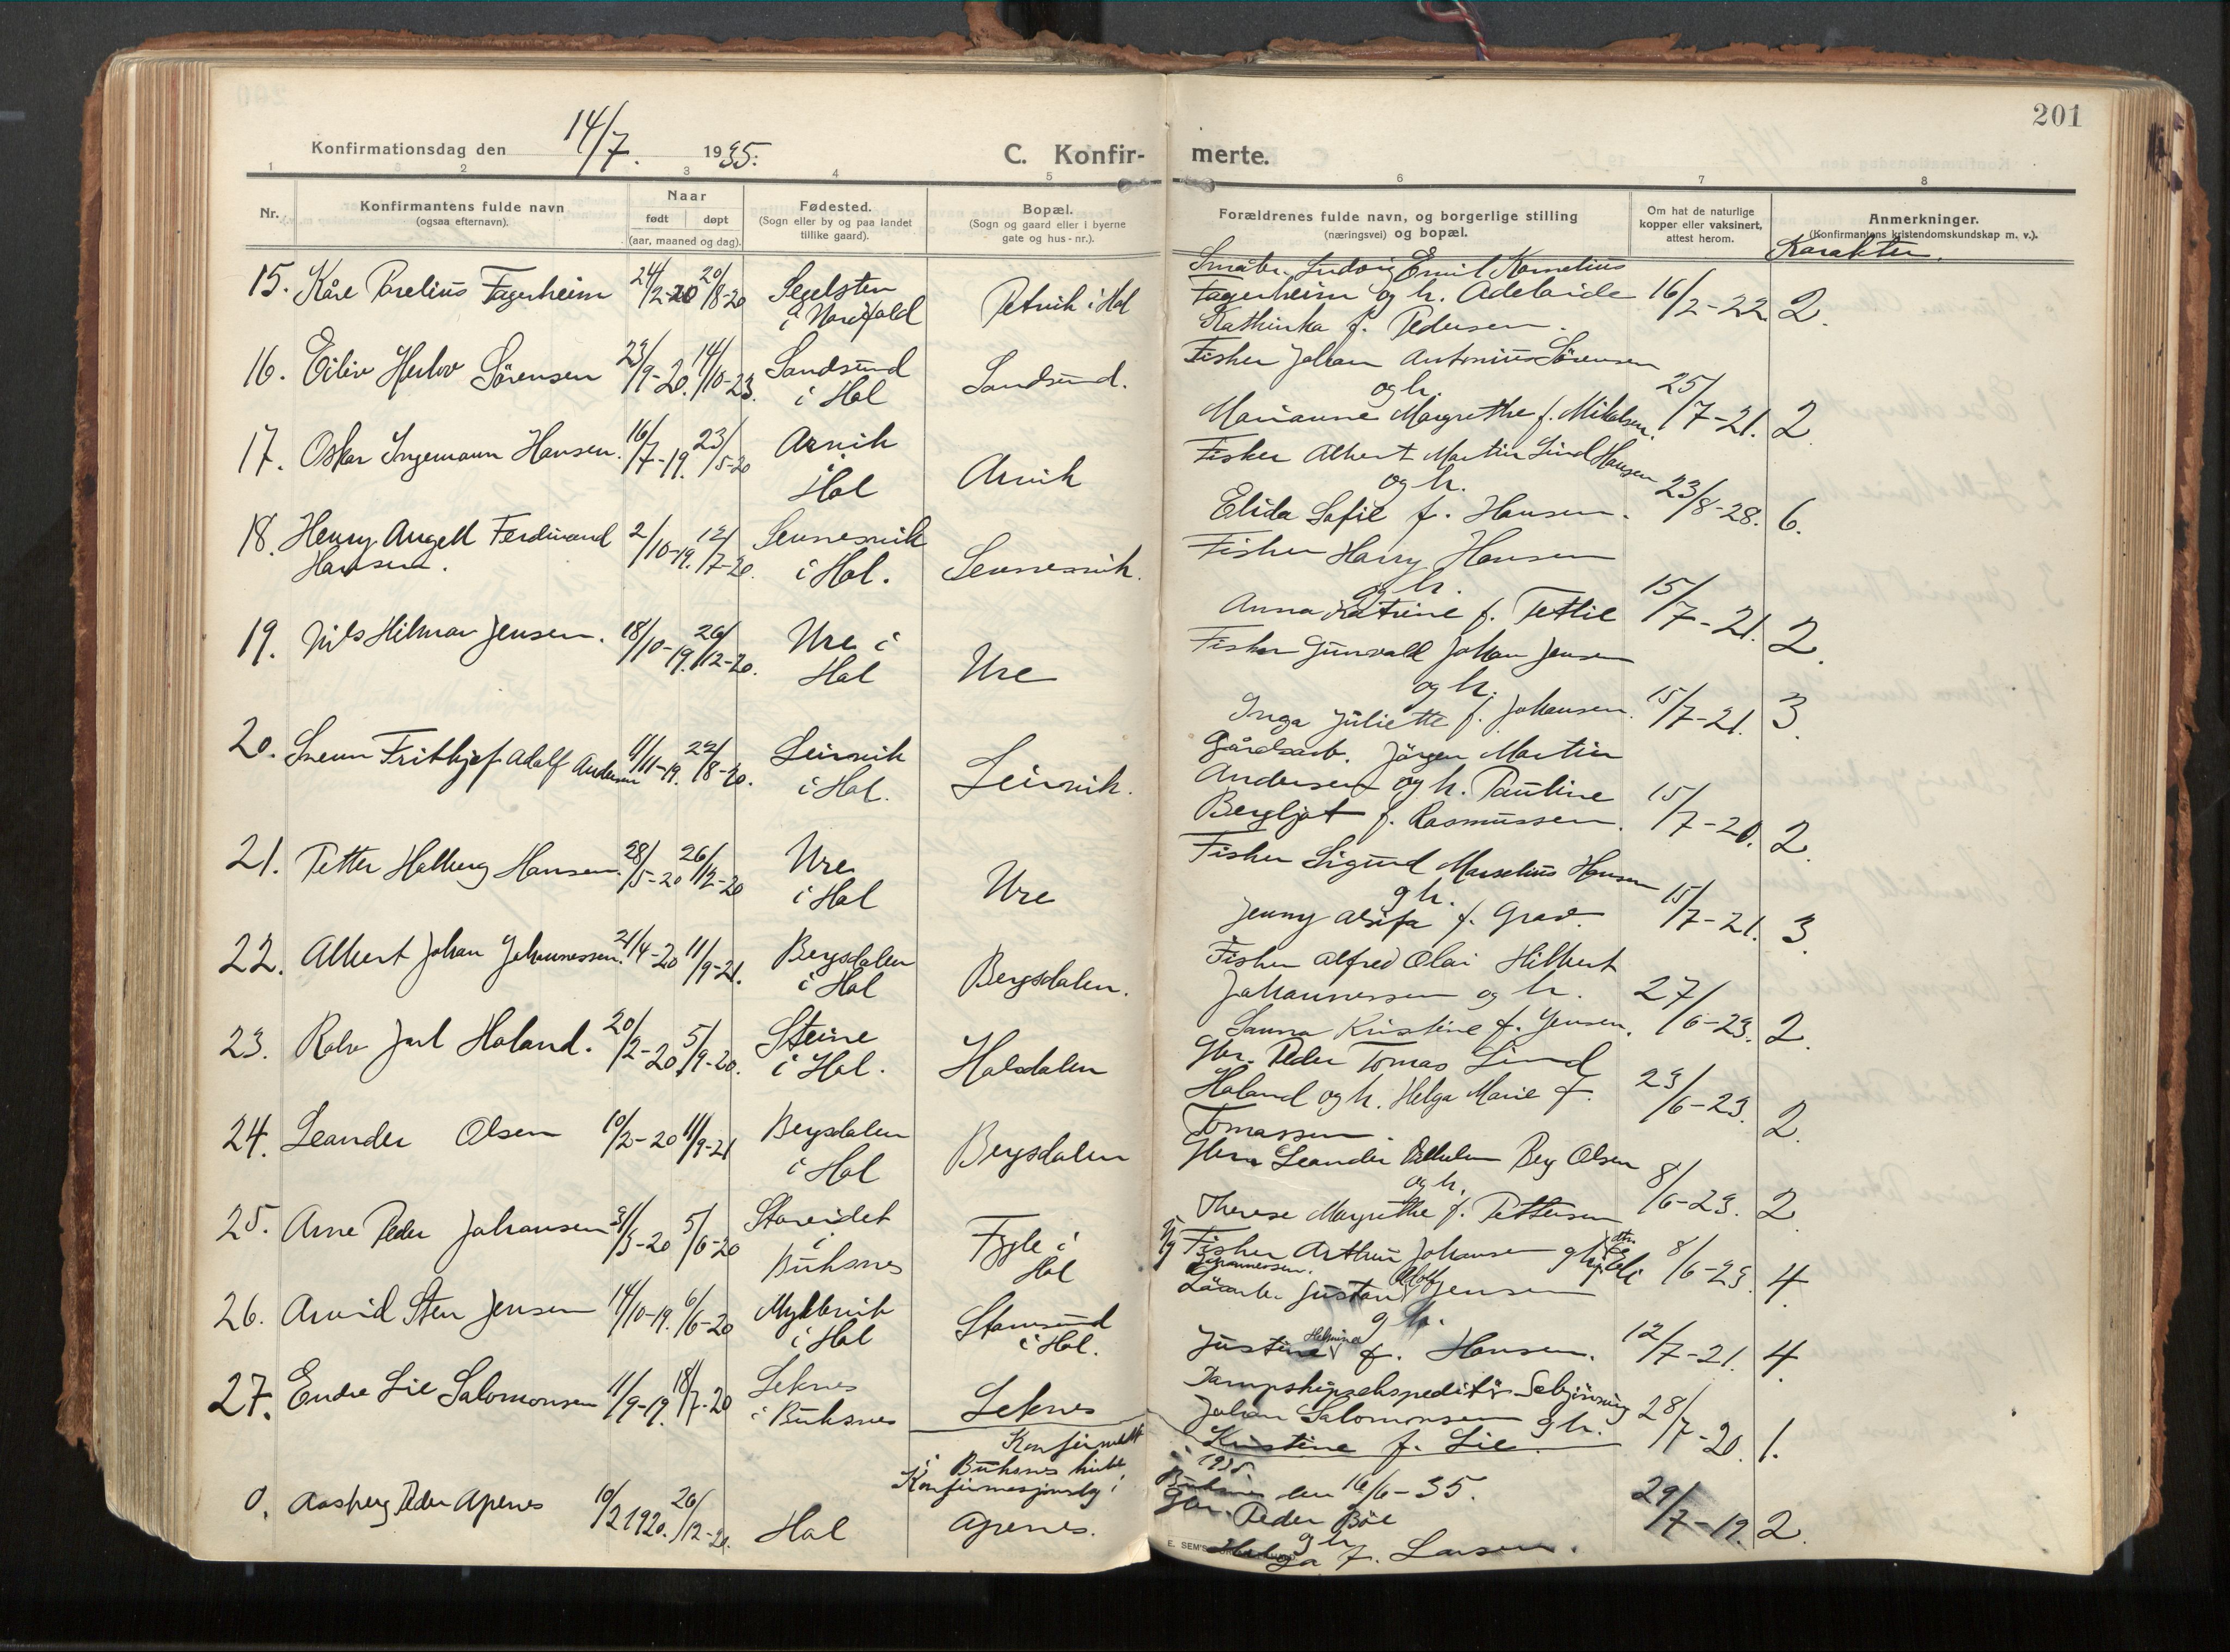 201
Konfirmationsdag den 14/7. 1935.
C. Konfir- merte.
1 2 3 4 5 6 7 8
Nr.
Konfirmantens fulde navn
(ogsaa efternavn).
Naar
født døpt
(aar, maaned og dag).
Fødested.
(Sogn eller by og paa landet
tillike gaard).
Bopæl.
(Sogn og gaard eller i byerne
gate og hus-nr.).
Forældrenes fulde navn, og borgerlige stilling
(næringsvei) og bopæl.
Om hat de naturlige
kopper eller vaksinert,
attest herom.
Anmerkninger.
(Konfirmantens kristendomskundskap m. v.).
Karakter.
15. Kåre Parelius Fagerheim 24/2-20 20/8-20
Segelsten
i Nordfold
Petvik i Hol
Småbr. Ludvig Emil Kornelius
Fagerheim og h. Adelaide
Kathinka f. Pedersen.
16/2-22. 2.
16. Eiliv Herlov Sörensen 23/9-20. 14/10-23.
Sandsund
i Hol
Sandsund.
Fisker Johan Antonius Sörensen
og h.
Marianne Margrethe f. Mikalsen.
25/7-21. 2.
17. Oskar Ingemann Hansen. 16/7-19. 23/5-20
Arvik
i
Hol
Arvik
Fisker Albert Martin Lind Hansen
og h.
Elida Sofie f. Hansen.
23/8-28. 6.
18. Henry Angell Ferdinand
Hansen.
2/10-19. 12/7-20.
Sennesvik
i Hol.
Sennesvik.
Fisker Harry Hansen
og h.
Anna Katrine f. Tetlie
15/7-21. 2.
19. Nils Hilmar Jensen. 18/10-19. 26/12-20.
Ure i
Hol
Ure
Fisker Gunvald Johan Jensen
og h.
Inga Juliette f. Johansen.
15/7-21. 3.
20. Svenn Frithjof Adolf Andersen 11/11-19. 22/8-20.
Leirvik
i Hol.
Leirvik.
Gårdsarb. Jörgen Martin
Andersen og h. Pauline
Bergljot f. Rasmussen.
15/7-20. 2.
21. Petter Halberg Hansen. 28/5-20 26/12-20
Ure
i Hol
Ure
Fisker Sigurd Marselius Hansen
og h.
Jenny f. Grav.
15/7-21. 3.
22. Albert Johan Johannessen. 21/4-20 11/9-21.
Bergsdalen
i Hol
Bergsdalen.
Fisker Alfred Olai Hilbert
Johannessen og h.
Sanna Kristine f. Jensen.
27/6-23. 2.
23. Rolv Jarl Holand. 20/2-20 5/9-20.
Steine
i Hol.
Holsdalen
Gbr. Peder Tomas Lind
Holand og h. Helga Marie f.
Tomassen.
23/6-23. 2.
24. Leander Olsen 10/2-20 11/9-21
Bergsdalen
i Hol
Bergsdalen
Gbr. Leander Berg Olsen
og h.
Therese Margrethe f. Pettersen
8/6-23. 2.
25. Arne Peder Johansen 31/3-20 5/6-20
Storeidet
i
Buksnes
Fygle i
Hol
Fisker Arthur Johansen og h.
Johannessen.
8/6-23. 4.
26. Arvid Sten Jensen 14/10-19. 6/6-20
Myklevik
i Hol
Stamsund
i Hol.
Gustav Adolf Jensen
og h.
Justine f. Hansen.
12/7-21. 4.
27. Endre Lie Salomonsen 11/9-19. 18/7-20
Leknes
i Buksnes
Leknes
Dampskipsekspeditör
Johan Salomonsen og h.
Kristine f. Lie.
28/7-20. 1.
Konfirmert
i Buksnes kirke
1935.
Konfirmasjonsdag i
Buksnes den 16/6-35.
0. Aasberg Peder Apenes 10/2 1920. 26/12-20.
Hol
Apenes.
Gbr. Peder Böe
og h.
Helga f. Larsen.
29/7-19. 2.